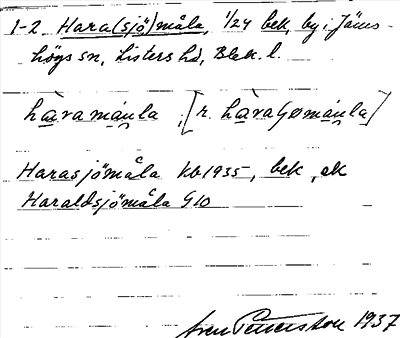 1-2 Hara(sjö)måla, 1/24 bek, by i Jäms-
högs sn, Listers hd, Blek. l.
hàramá̱u̱la, [r. hàraʃømá̱u̱la]
Harasjömåla kb 1935, bek, ek
Haraldsjömåla G10
Sven Pettersson 1937